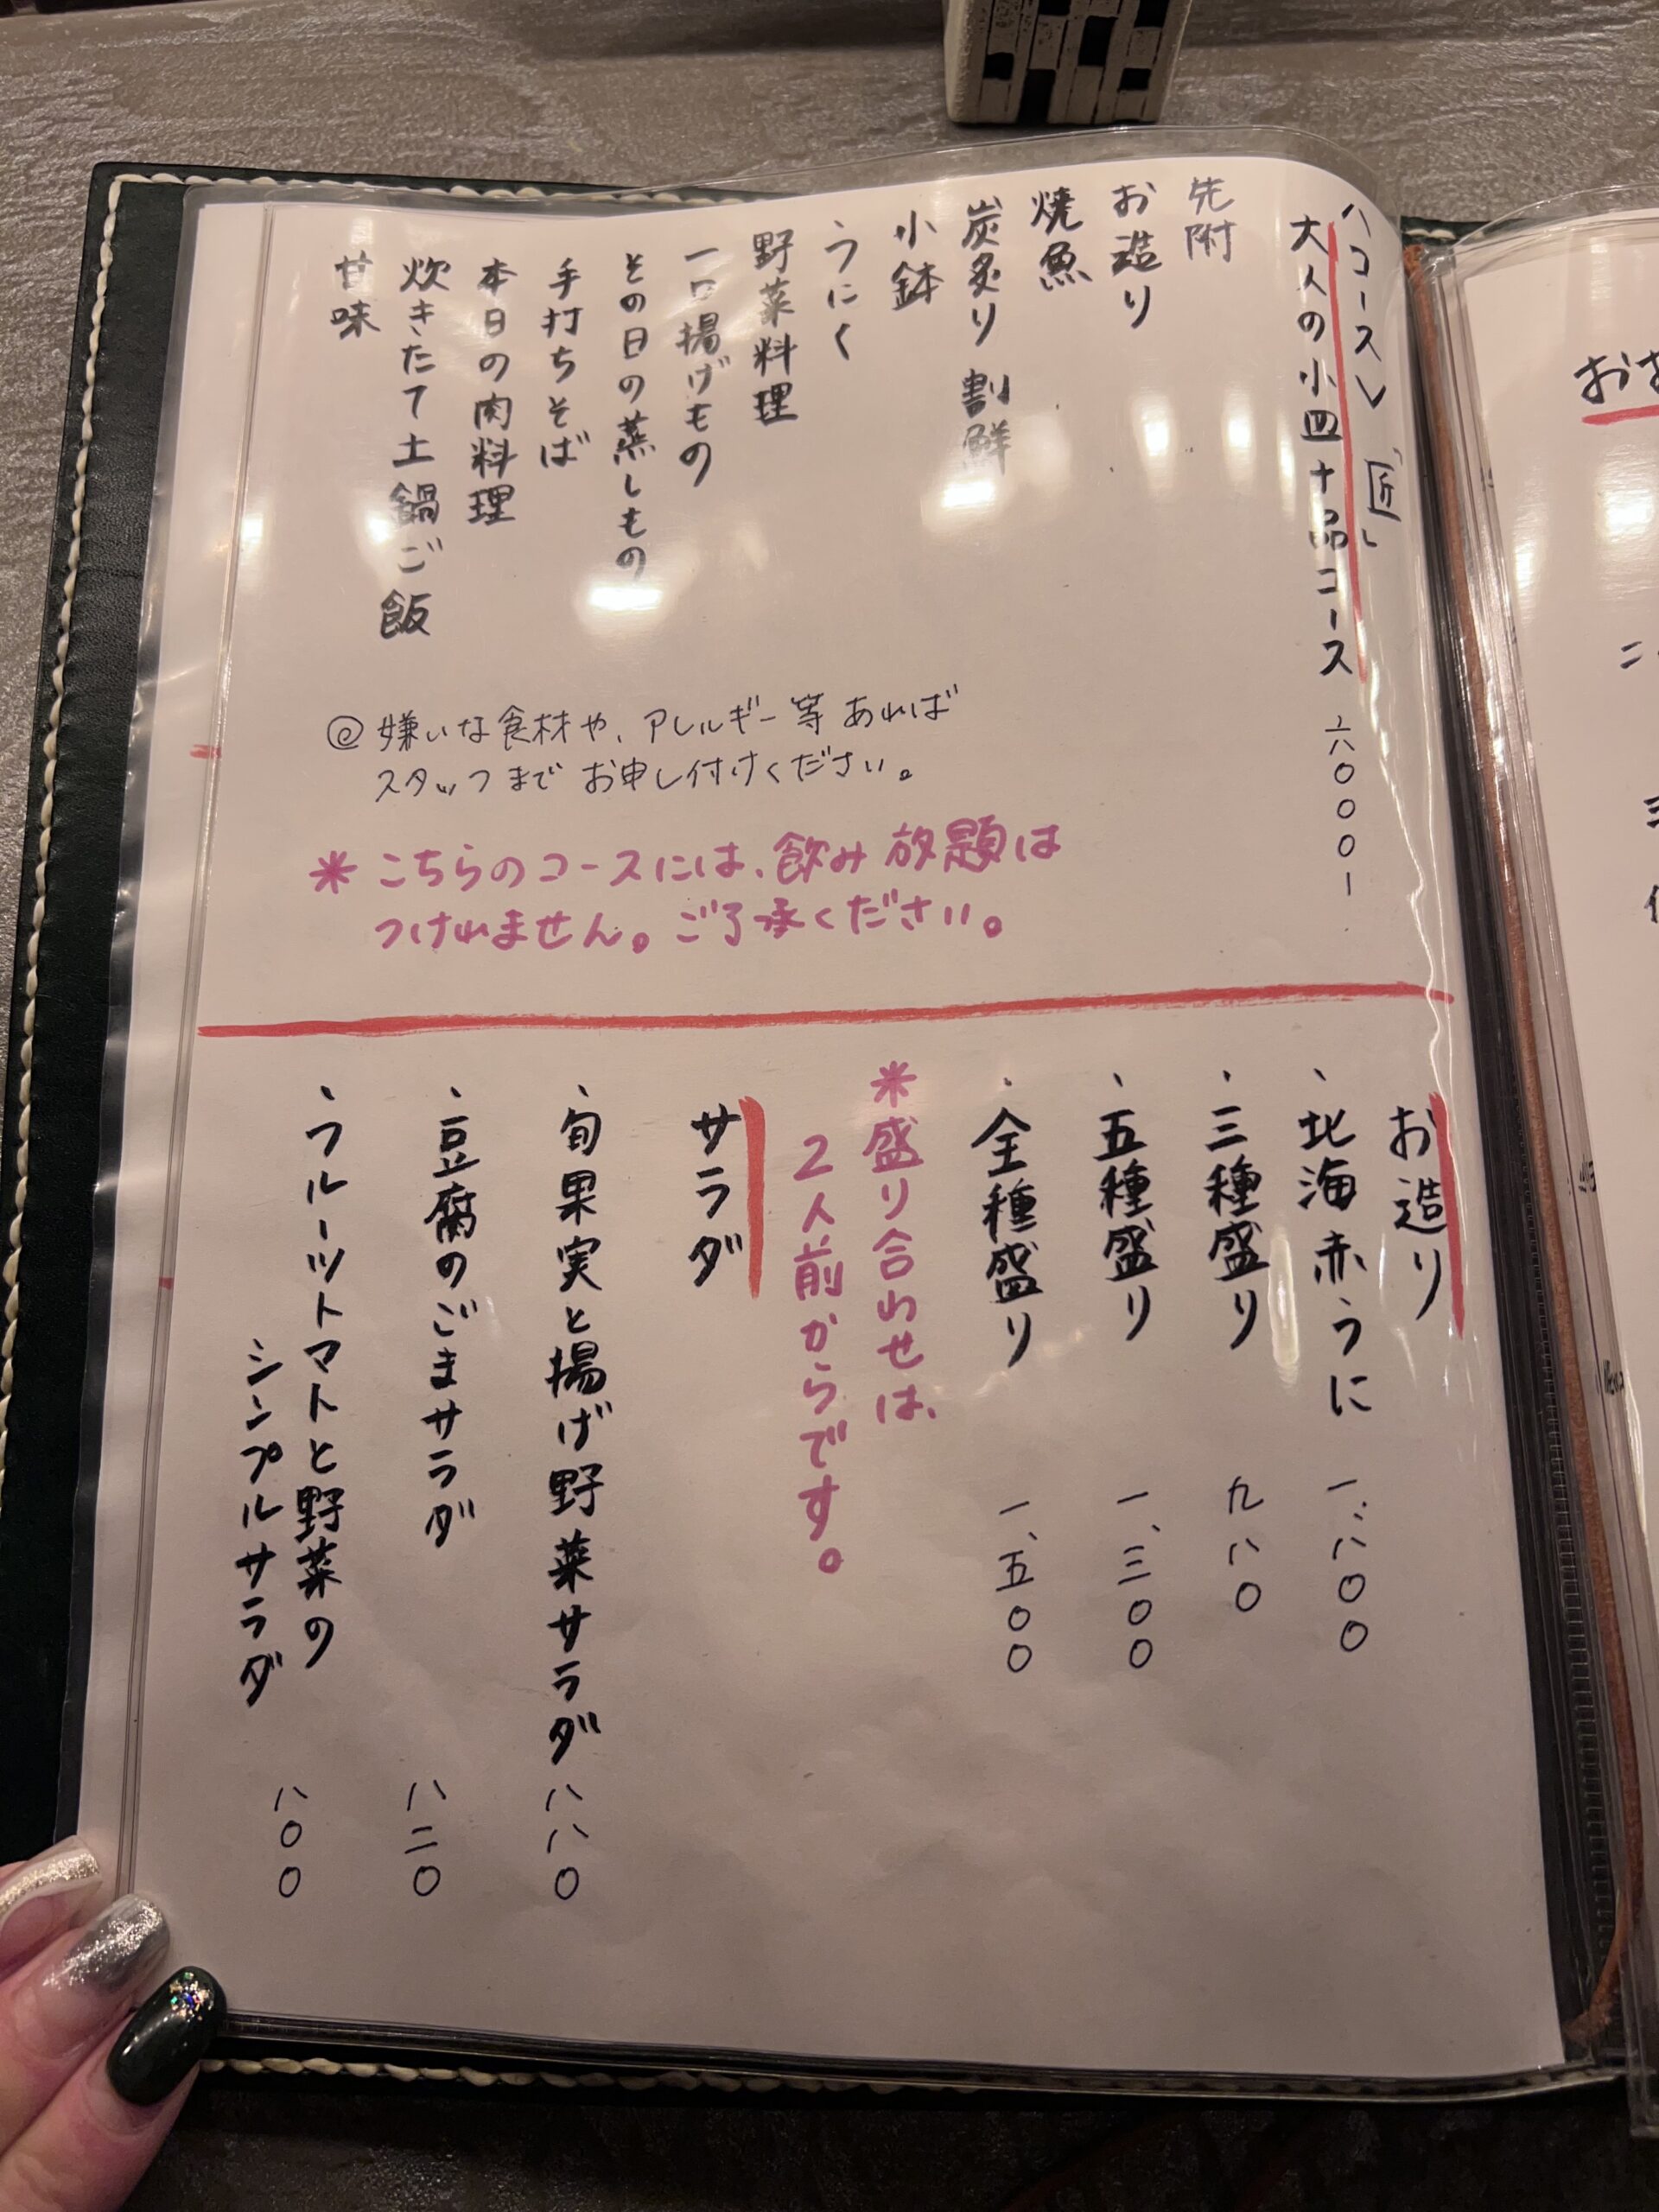 〈コース〉「匠」
大人の小皿十品コース 六〇〇〇ー
先附
お造り
焼魚
炭炙り 割鮮
小鉢
うにく
野菜料理
一口揚げもの
その日の蒸しもの
手打ちそば
本日の肉料理
炊きたて土鍋ご飯
甘味
@嫌いな食材や、アレルギー等あれば
スタッフまでお申し付けください。
*こちらのコースには、飲み放題は
つけれません。ご了承ください。
お造り
、北海赤うに 一、八〇〇
、三種盛り 九八〇
、五種盛り 一、三〇〇
、全種盛り 一、五〇〇
*盛り合わせは、
2人前からです。
サラダ
、旬果実と揚げ野菜サラダ 八八〇
、豆腐のごまサラダ 八二〇
、フルーツトマトと野菜の
シンプルサラダ 八〇〇